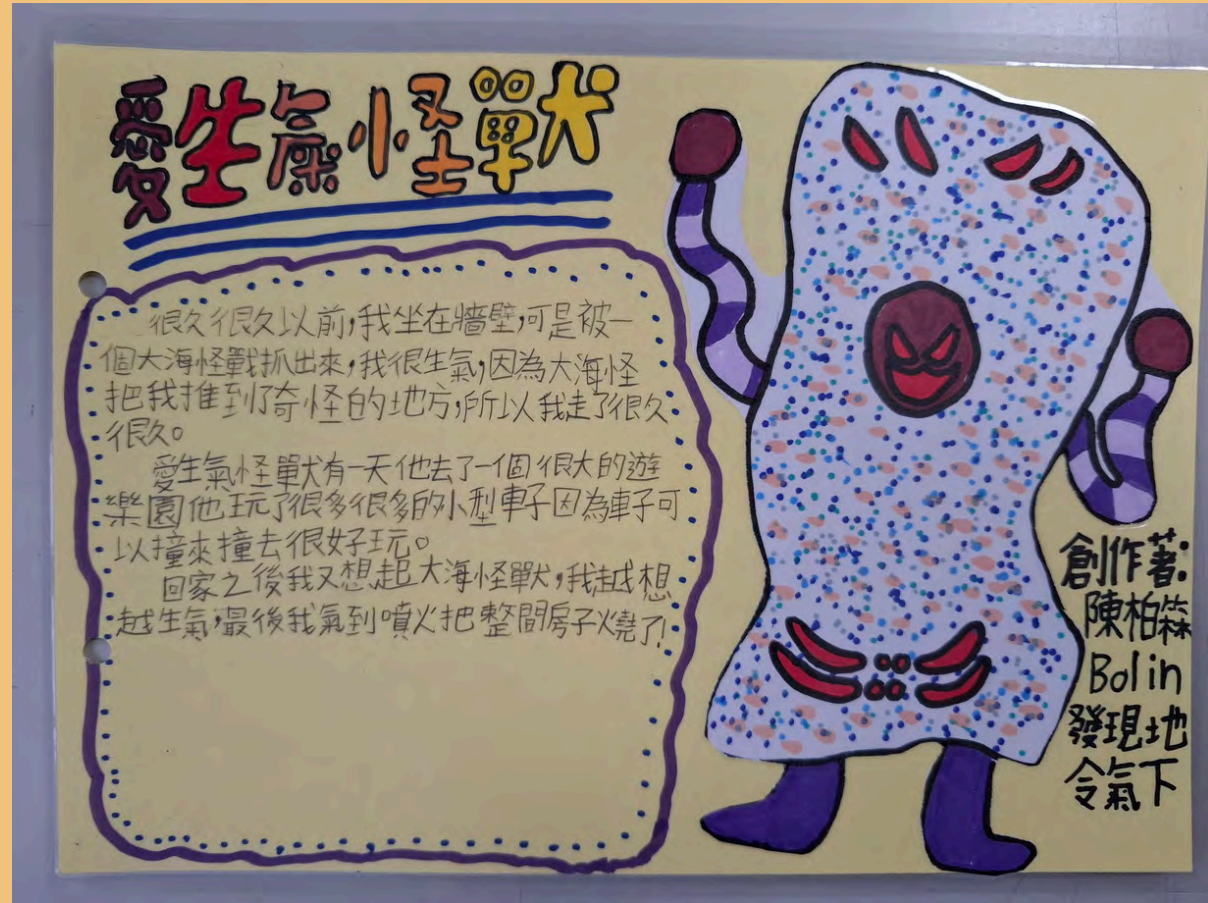 愛生氣怪獸
很久很久以前,我坐在牆壁,可是被一
個大海怪戰抓出來,我很生氣,因為大海怪
把我推到了奇怪的地方,所以我走了很久
很久。
愛生氣怪獸有一天他去了一個很大的遊
樂園他玩了很多很多的小型車子因為車子可
以撞來撞去很好玩。
回家之後我又想起大海怪獸,我越想
越生氣,最後我氣到噴火把整間房子燒了!
創作著:
陳柏箖
Bolin
發現地
令氣下